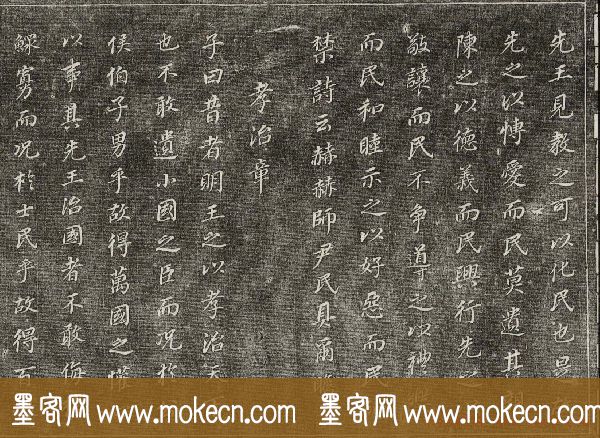 先王見教之可以化民也是
先之以博愛而民莫遺其
陳之以德義而民興行先
敬讓而民不争導之以禮
而民和睦示之以好惡而民
禁詩云赫赫師尹民具爾
孝治章
子曰昔者明王之以孝治天
也不敢遺小國之臣而况於
侯伯子男乎故得萬國之懽
以事其先王治國者不敢侮
鰥寡而况於士民乎故得百
墨客网 www.mokecn.com 墨客网 www.mokecn.com